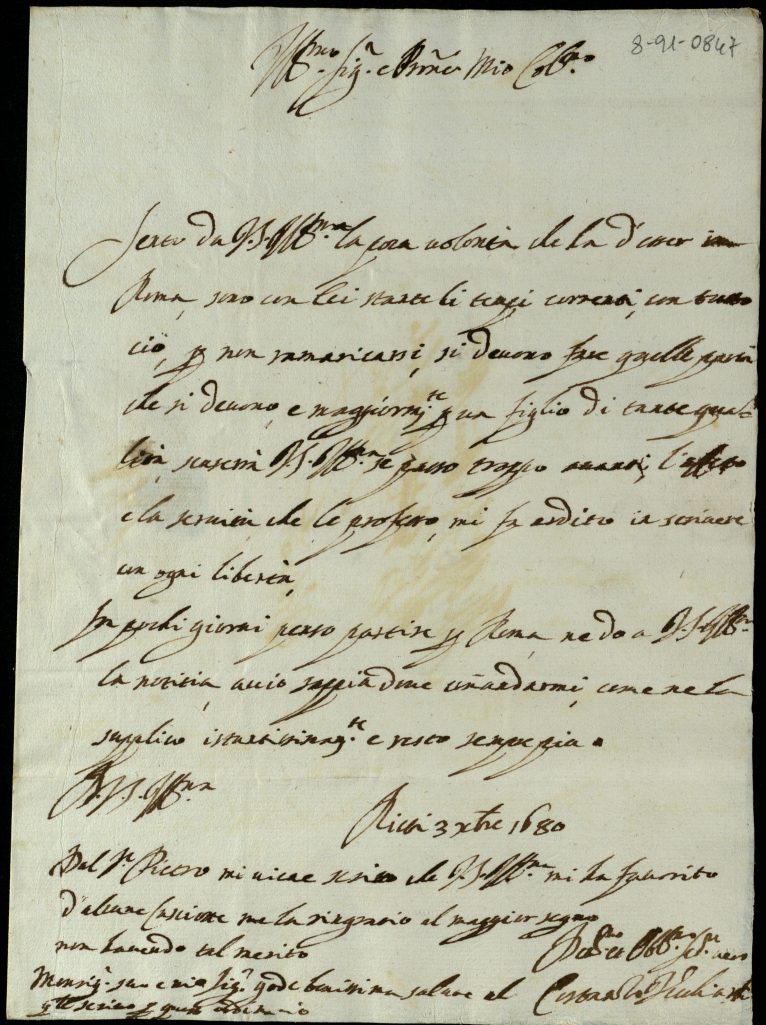 8-91-0847
Ill.mo Sig.r e Pron Mio Col.mo
Sento da V.S. Ill.ma la poca volontà che ha d'esser in
Roma, sono con lei stante li tempi correnti, con tutto
ciò, p non ramaricarsi, si devono fare quelle parti
che si devono, e maggiorm.te p un figlio di tante qua-
lità, scuserà V.S. Ill.ma se passo troppo avanti, l'affetto
e la servitù che le professo, mi fa ardito in scrivere
con ogni libertà,
In pochi giorni penso partire p Roma, ne do a V.S. Ill.ma
la notitia, acciò sappia dove comandarmi, come ne la
supplico istantissimam.te e resto sempre più
Di V.S. Ill.ma
Rieti 3 xbre 1680
Dal S.r Pietro mi viene scritto che V.S. Ill.ma mi ha favorito
d'alcune casciotte me la ringratio al maggior segno
non havendo tal merito
Dev.mo et Obb.mo Ser.re vero
Monsig.r suo e mio Sig.r gode benissima salute al
q.le scrivo p questo ordinario